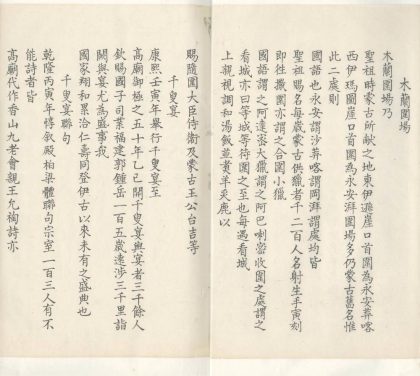 木蘭圍場
木蘭圍場乃
聖祖時蒙古所獻之地東伊遜崖口首圍為永安莽喀
西伊瑪圖崖口首圍為永安湃圍場多仍蒙古舊名惟
此二處則
國語也永安謂沙莽喀謂岡湃謂處均皆
聖祖賜名每歲蒙古供獵者千二百人名射生手寅刻
即往撒圍亦謂之合圍小獵
國語謂之阿達密大獵謂之阿巴喇密收圍之處謂之
看城亦曰等城等待圍之至也每遇看城
上親視調和湯飯並賁羊炙鹿以
賜隨圍大臣侍衛及蒙古王公台吉等
千叟宴
康熙壬寅年舉行千叟宴至
高廟御極之五十年乙巳開千叟宴與宴者三千餘人
欽賜國子司業福建郭鍾岳一百五歲遠涉三千里詣
闕與宴尤為盛事哉
國家翔和累洽仁壽同登伊古以來未有之盛典也
千叟宴聯句
乾隆丙寅年惇敘殿柏梁體聯句宗室一百三人有不
能詩者皆
高廟代作香山九老會親王允祹詩亦